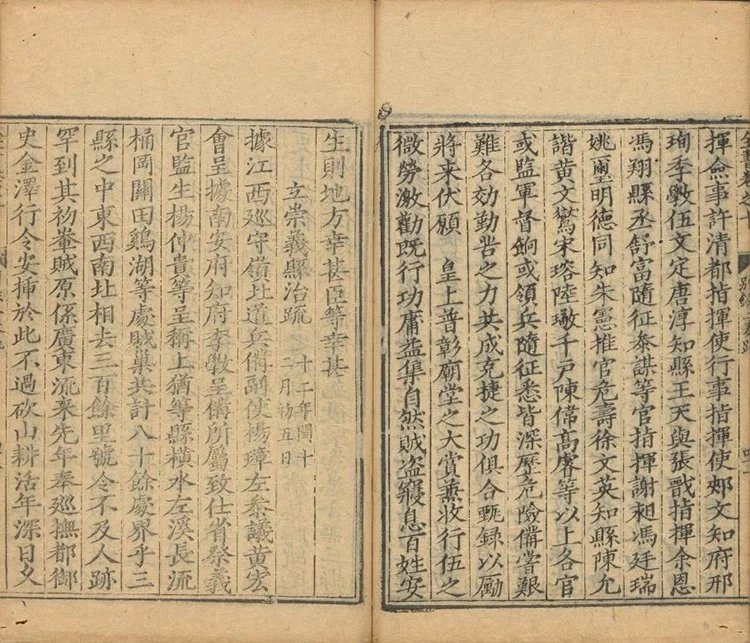 揮僉事許清都指揮使行事指揮使郟文知府邢
珣季斆伍文定唐淳知縣王天與張戩指揮余恩
馮翔縣丞舒富隨征參謀等官指揮謝昶馮廷瑞
姚璽明德同知朱憲推官危壽徐文英知縣陳允
諧黃文鸑宋瑢陸璥千戶陳偉高睿等以上各官
或監軍督餉或領兵隨征悉皆深歷危險備嘗艱
難各効勤勞之力共成克捷之功俱合甄錄以勵
將來伏願 皇上普彰廟堂之大賞兼收行伍之
微勞激勸旣行功庸益集自然賊盜寢息百姓安
生則地方幸甚臣等幸甚
立崇義縣治疏 十二年閏十
二月初五日
據江西巡守嶺北道兵備副使楊璋左參議黃宏
會呈據南安府知府季斆呈備所屬致仕省祭義
官監生楊仲貴等呈稱上猶等縣橫水左溪長流
桶岡關田鷄湖等處賊巢共計八十餘處界乎三
縣之中東西南北相去三百餘里號令不及人跡
罕到其初輋賊原係廣東流來先年奉巡撫都御
史金澤行令安揷於此不過砍山耕活年深日久